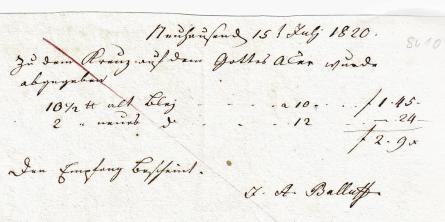 Neuhausen d 15t July 1820.
8010
Zu dem Kreuz auf dem Gottes Acker wurde
abgegeben
10 1/2 ℔ alt Bley - - - a 10 - - - f 1. 45.
2 " neues d - - - 12 - - - 24
f 2. 9 x
Den Empfang bescheint.
J. A. Balluff